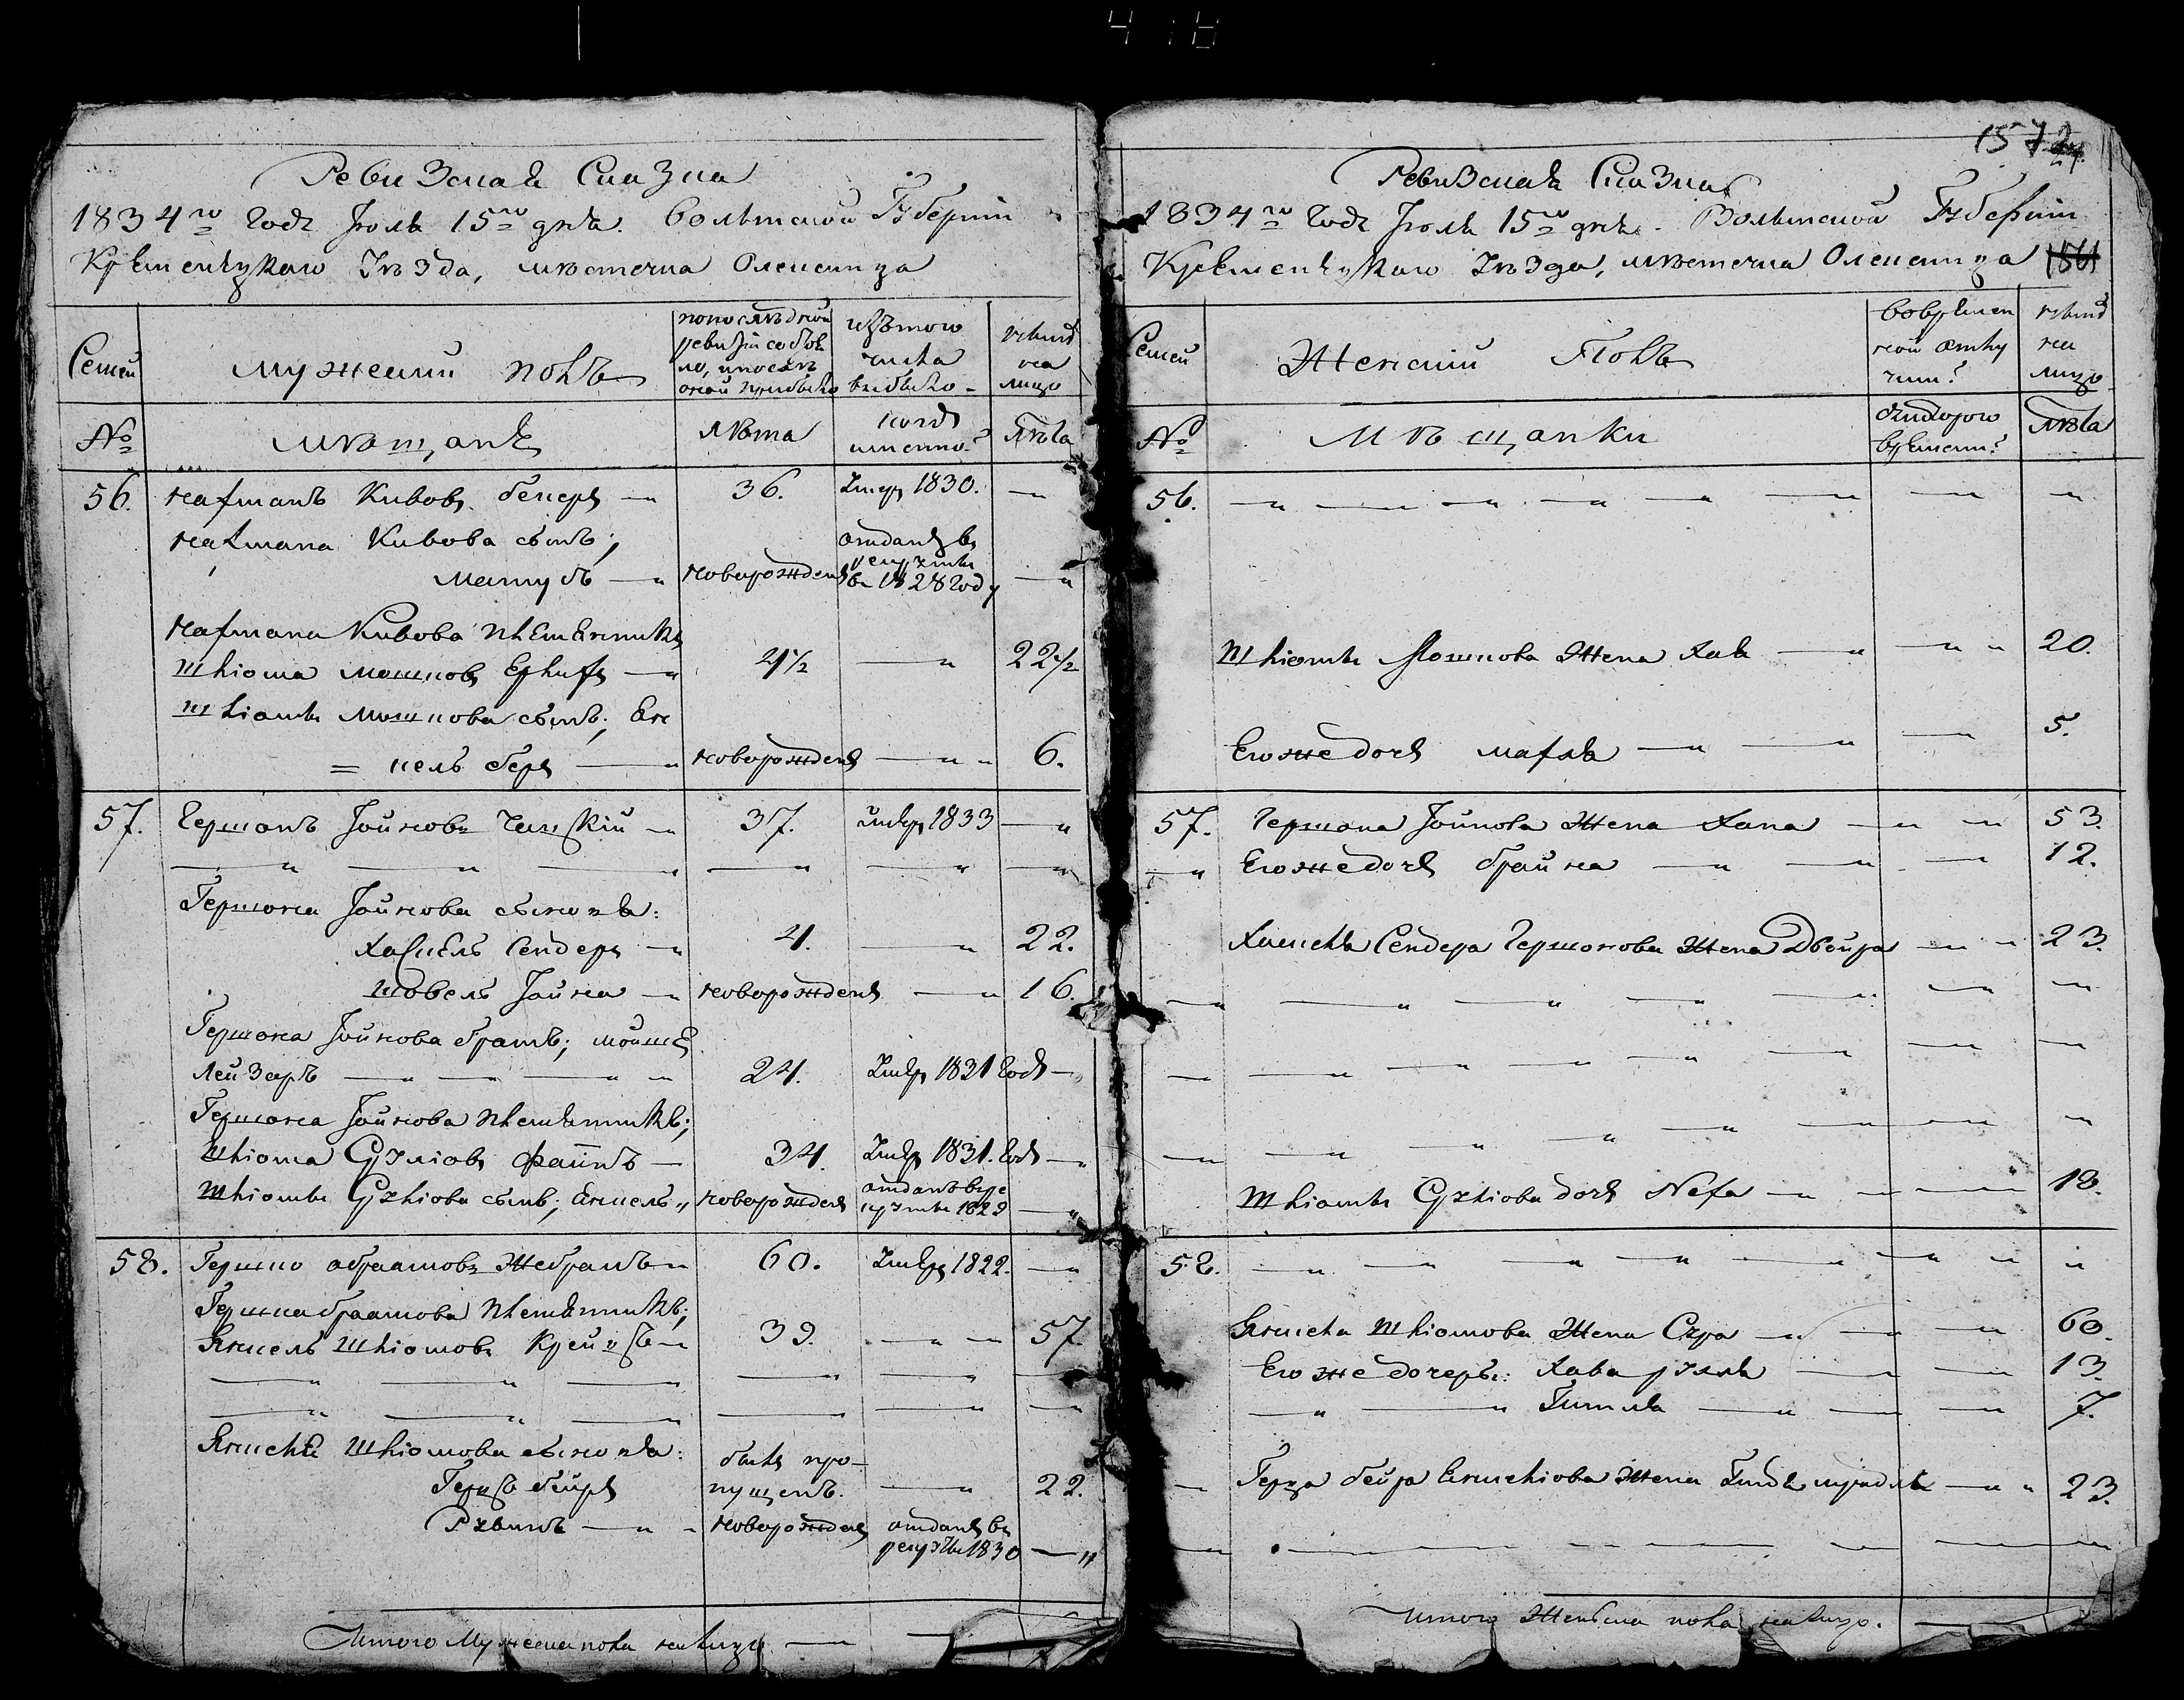 418
Ревизская Сказка
1834го Года Іюля 15го дня. Волынской Губерніи
Кременецкаго Уѣзда, мѣстечка Олексинца
Семьи
Мужескій полъ
по послѣдней ревизіи состояло, и послѣ оной прибыло
изъ того числа выбыло
нынѣ на лицо
№
мѣщане
лѣта
когда именно?
лѣта
56. Нахманъ Кивовъ Бекеръ — 36. Умеръ 1830. —
Нахмана Кивова сынъ;
Матусъ — новорожденъ отданъ въ рекруты въ 1828 году —
Нахмана Кивова племянникъ
Шліома Мошковъ — 4½ — 22½
Шліомы Мошкова сынъ; Ян
= кель Беръ — новорожденъ — 6.
57. Гершонъ Іойновъ — 37. умеръ 1833 —
Гершона Іойнова сыновья:
Хаскель Сендеръ — 4. — 22.
Шовель Іойна — новорожденъ — 16.
Гершона Іойнова братъ; Мойше
Лейзеръ — 24. Умеръ 1831 года —
Гершона Іойнова племянникъ;
Шліома Сруліовъ — 34. Умеръ 1831. года —
Шліомы Сруліова сынъ; Янкель новорожденъ отданъ въ рекруты 1829 —
58. Гершко Абрамовъ Жебракъ — 60. Умеръ 1822. —
Гершка Абрамова племянникъ;
Янкель Шліомовъ — 39. — 57.
Янкеля Шліомова сыновья:
Герцъ Бейръ былъ пропущенъ. — 22.
Рувинъ — новорожденъ отданъ въ рекруты 1830 —
Итого Мужеска пола на лицо —
157
Ревизская Сказка
1834го Года Іюля 15го дня. Волынской Губерніи
Кременецкаго Уѣзда, мѣстечка Олексинца
Семьи
Женскій Полъ
во временной отлучки?
нынѣ на лицо
№
Мѣщанки
съ котораго времени?
лѣта
56. —
Шліомы Мошкова Жена Хая — 20.
Его же дочь Махля — 5.
57. Гершона Іойнова Жена Хана — 53.
Его же дочь Брайна — 12.
Хаскеля Сендера Гершонова Жена Двойра — 23.
Шліомы Сруліова дочь Неха — 18.
58. —
Янкеля Шліомова Жена Сура — 60.
Его же дочери: Хава Рухля — 13.
Гитля — 7.
Герца Бейра Янкеліова Жена — 23.
Итого Женска пола на лицо. —